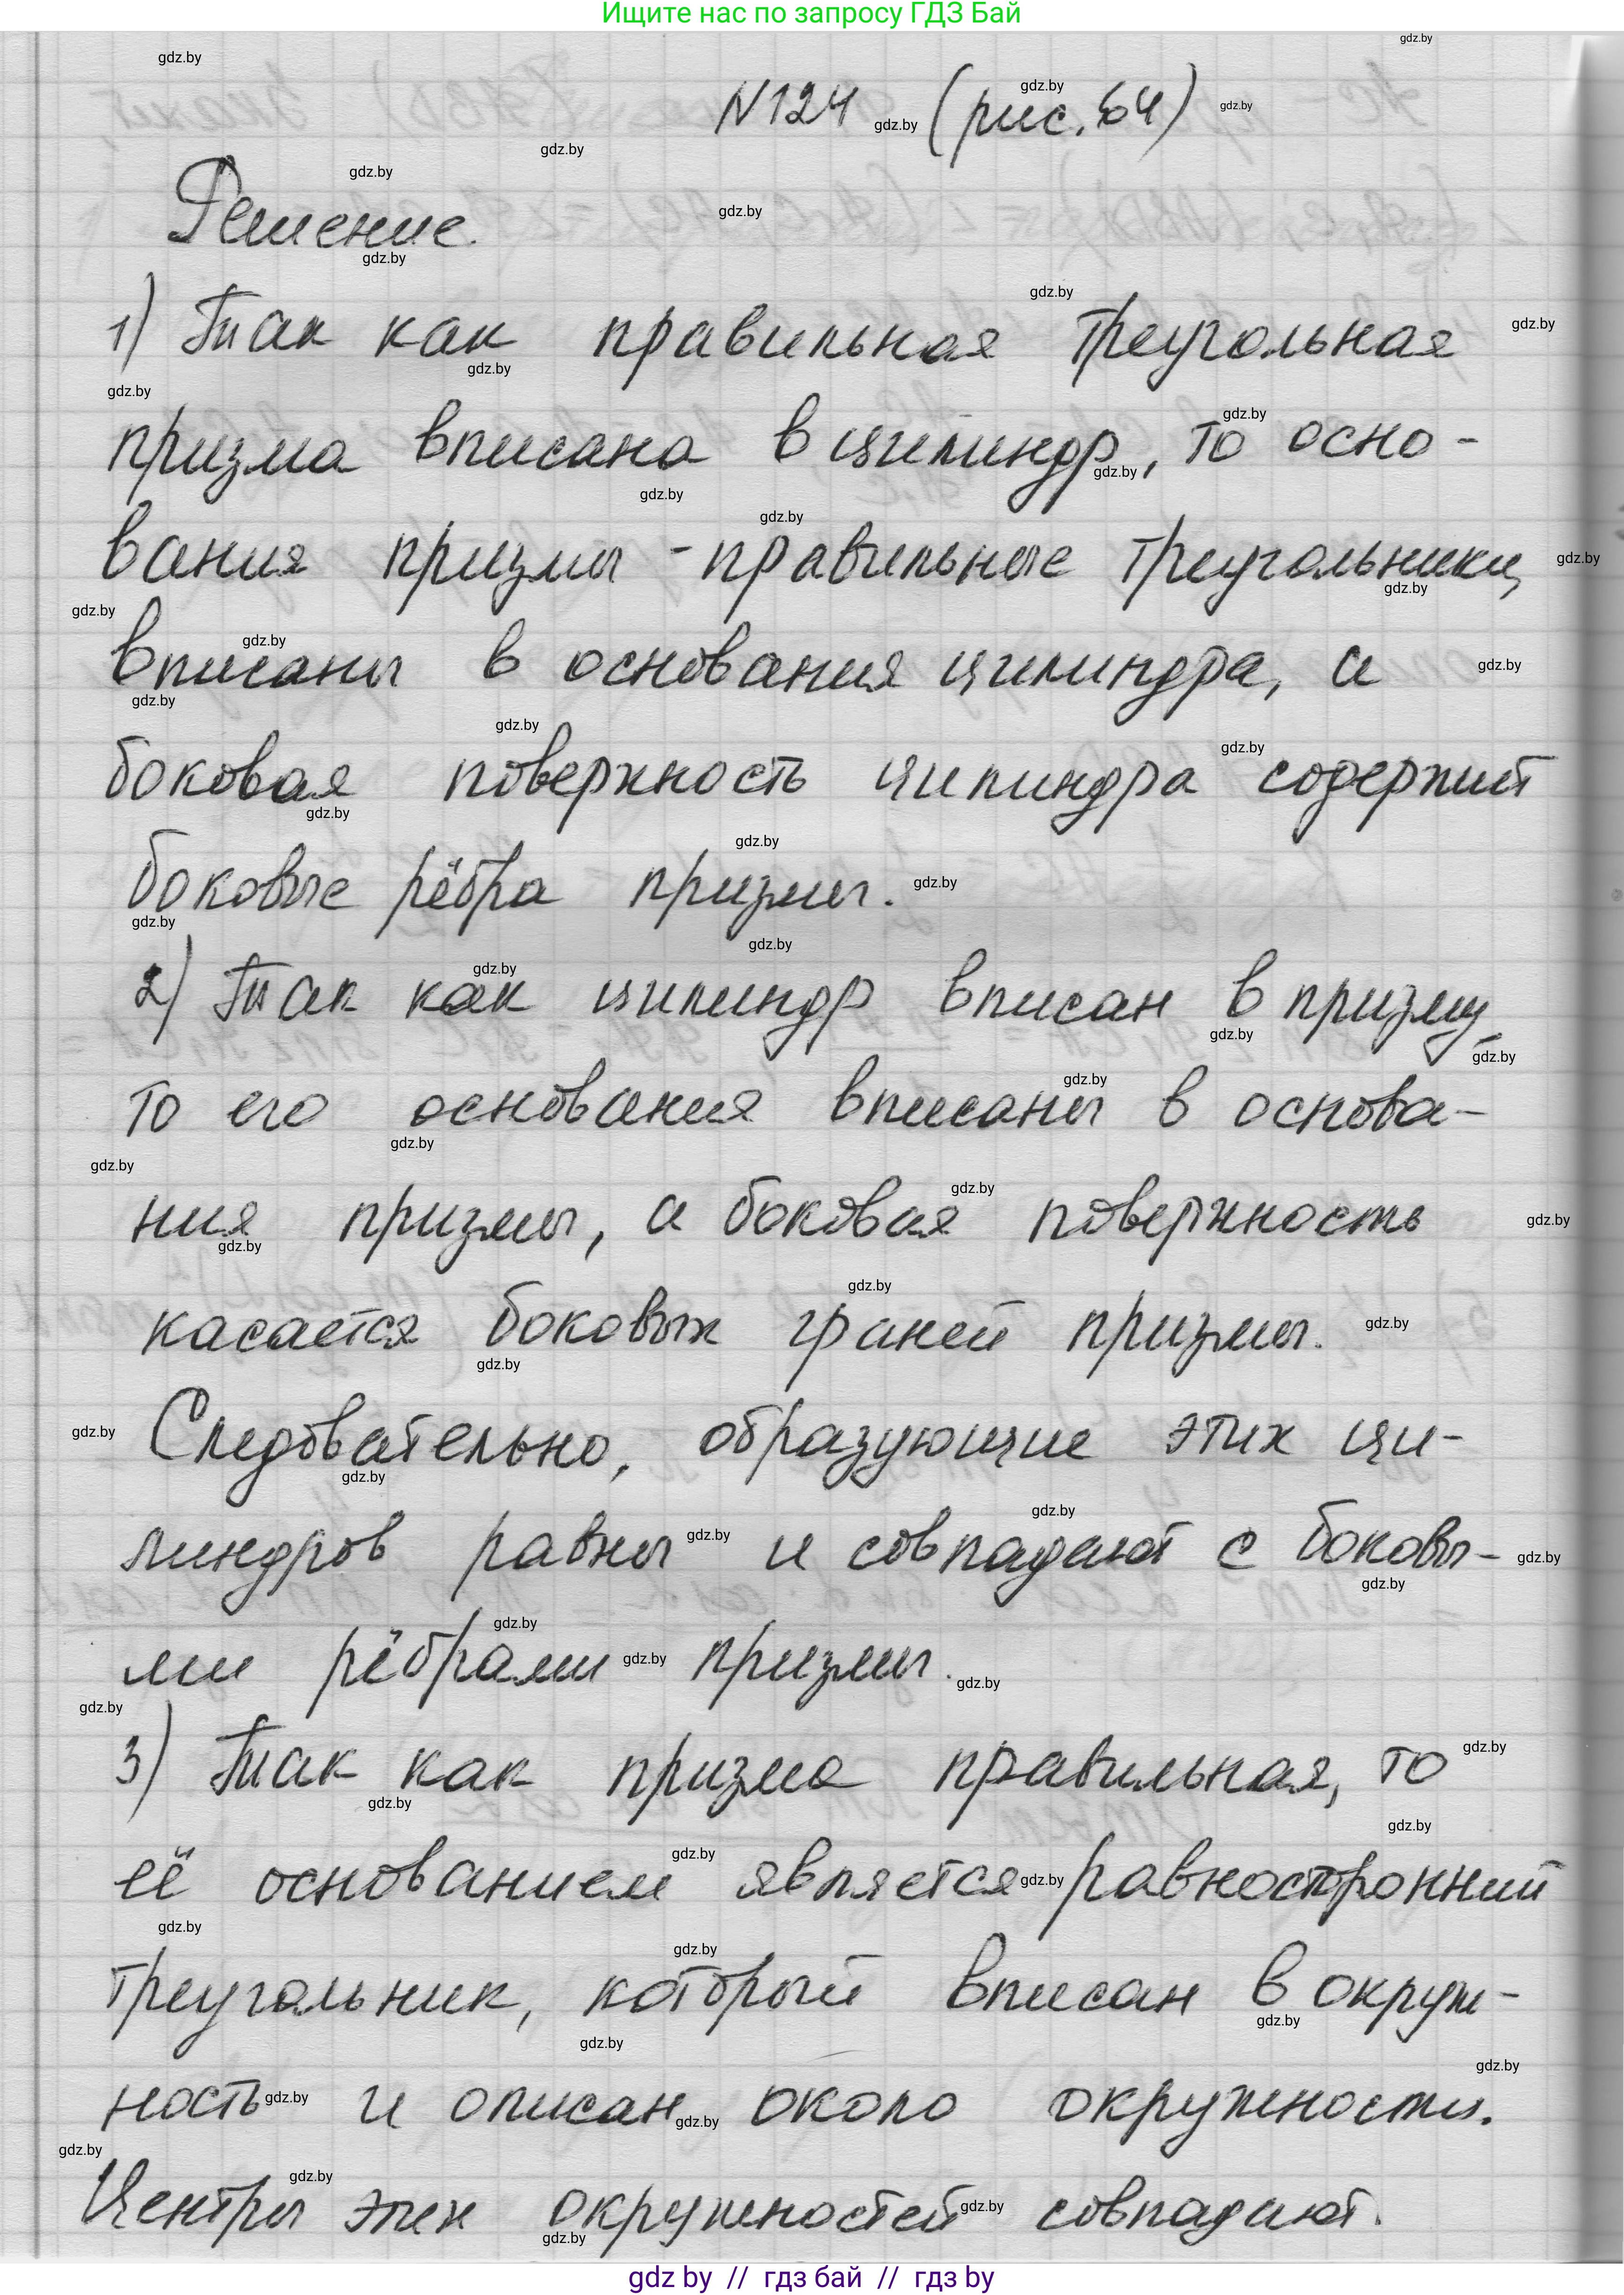 Ищите нас по запросу ГДЗ Бай
№124 (рис. 64)
Решение.
1) Так как правильная треугольная
призма вписана в цилиндр, то осно-
вания призмы - правильные треугольники,
вписаны в основания цилиндра, а
боковая поверхность цилиндра содержит
боковые рёбра призмы.
2) Так как цилиндр вписан в призму,
то его основания вписаны в основа-
ния призмы, а боковая поверхность
касается боковых граней призмы.
Следовательно, образующие этих ци-
линдров равны и совпадают с боковы-
ми рёбрами призмы.
3) Так как призма правильная, то
её основанием является равносторонний
треугольник, который вписан в окруж-
ность и описан около окружности.
Центры этих окружностей совпадают.
gdz by // гдз бай // гдз by